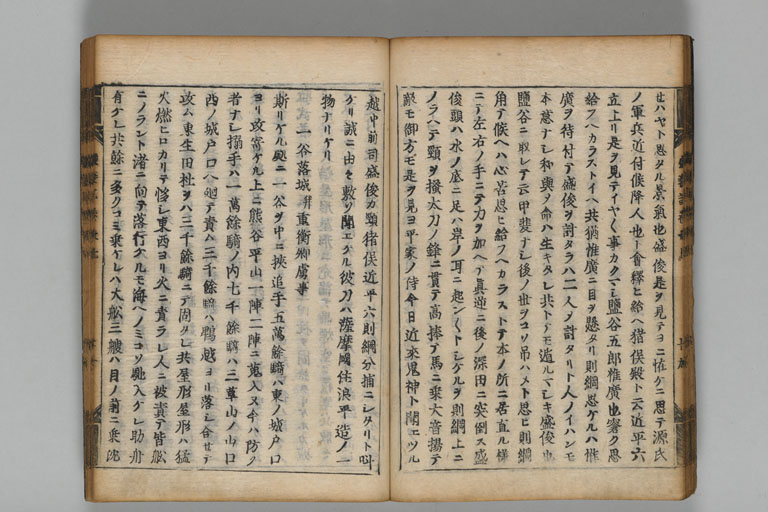 セハヤト思タル景氣也盛俊是ヲ見テヨニ怪ケニ思テ源氏
ノ軍兵近付候降人也ト會釋ヒ給ヘ猪俣殿ト云近平六
立上リ是ヲ見テイヤ〳〵事カクマシ鹽谷五郎惟廣也寧ク思
給フヘカラストイヘ共猶惟廣ニ目ヲ懸タリ則綱思ケルハ惟
廣ヲ待付テ盛俊ヲ討タラハ二人シテ討タリト人ノイハンモ
本意ナシ和與ヲ命ハ生キタレ共トテモ遁ルマシキ盛俊也
鹽谷ニ取レテ云甲斐ナシ後ノ世ヲコソ吊ハメト思ヒ則綱
角テ候ヘハ心苦思ヒ給フヘカラストテ本ノ所ニ居直ル様
ニテ左右ノ手ニテ力ヲ加ヘテ真逆ニ後ノ深田ニ突倒ス盛
俊頭ハ水ノ底ニ足ハ岸ノ耳ニ起ン〳〵トシケルヲ則綱上ニ
ノラハテ頸ヲ掻太刀ノ鋒ニ貫テ高捧テ馬ニ乗大音揚テ
敵モ御方モ是ヲ見ヨ平家ノ侍今日近來鬼神ト聞エツル
越中前司盛俊カ頸猪俣近平六則綱分捕ニシタリト叫
ケリ誠ニ由々敷ソ聞エケル彼刀ハ薩摩國住浪平造ノ一
物ナリケリ
一谷落城并重衡卿虜事
斯リケル處ニ一谷ヲ中ニ挾追手五萬餘騎ハ東ノ城戸口
ヨリ攻寄ケル上ニ熊谷平山一陣二陣ニ蒐入ヌ今ハ防ク
者ナシ搦手ハ一萬餘騎ノ内七千餘騎ハ三草山ノ山口
西ノ城戸口ヘ廻テ責ム三千餘騎ハ鵯越ヨリ落シ合セテ
攻ム東生田杜ヲハ三千餘騎ニテ固タレ共屋形屋形ハ猛
火燃ヒロカリテ怪シ東西ヨリ火ニ責ラレ人ニ被責テ皆舩
ニノラント渚ニ向テ落行ケルモ海ヘノミコソ馳入ケレ助舟
有ケレ共餘ニ多クコミ乗ケレハ大舩三艘ハ目ノ前ニ乗沈